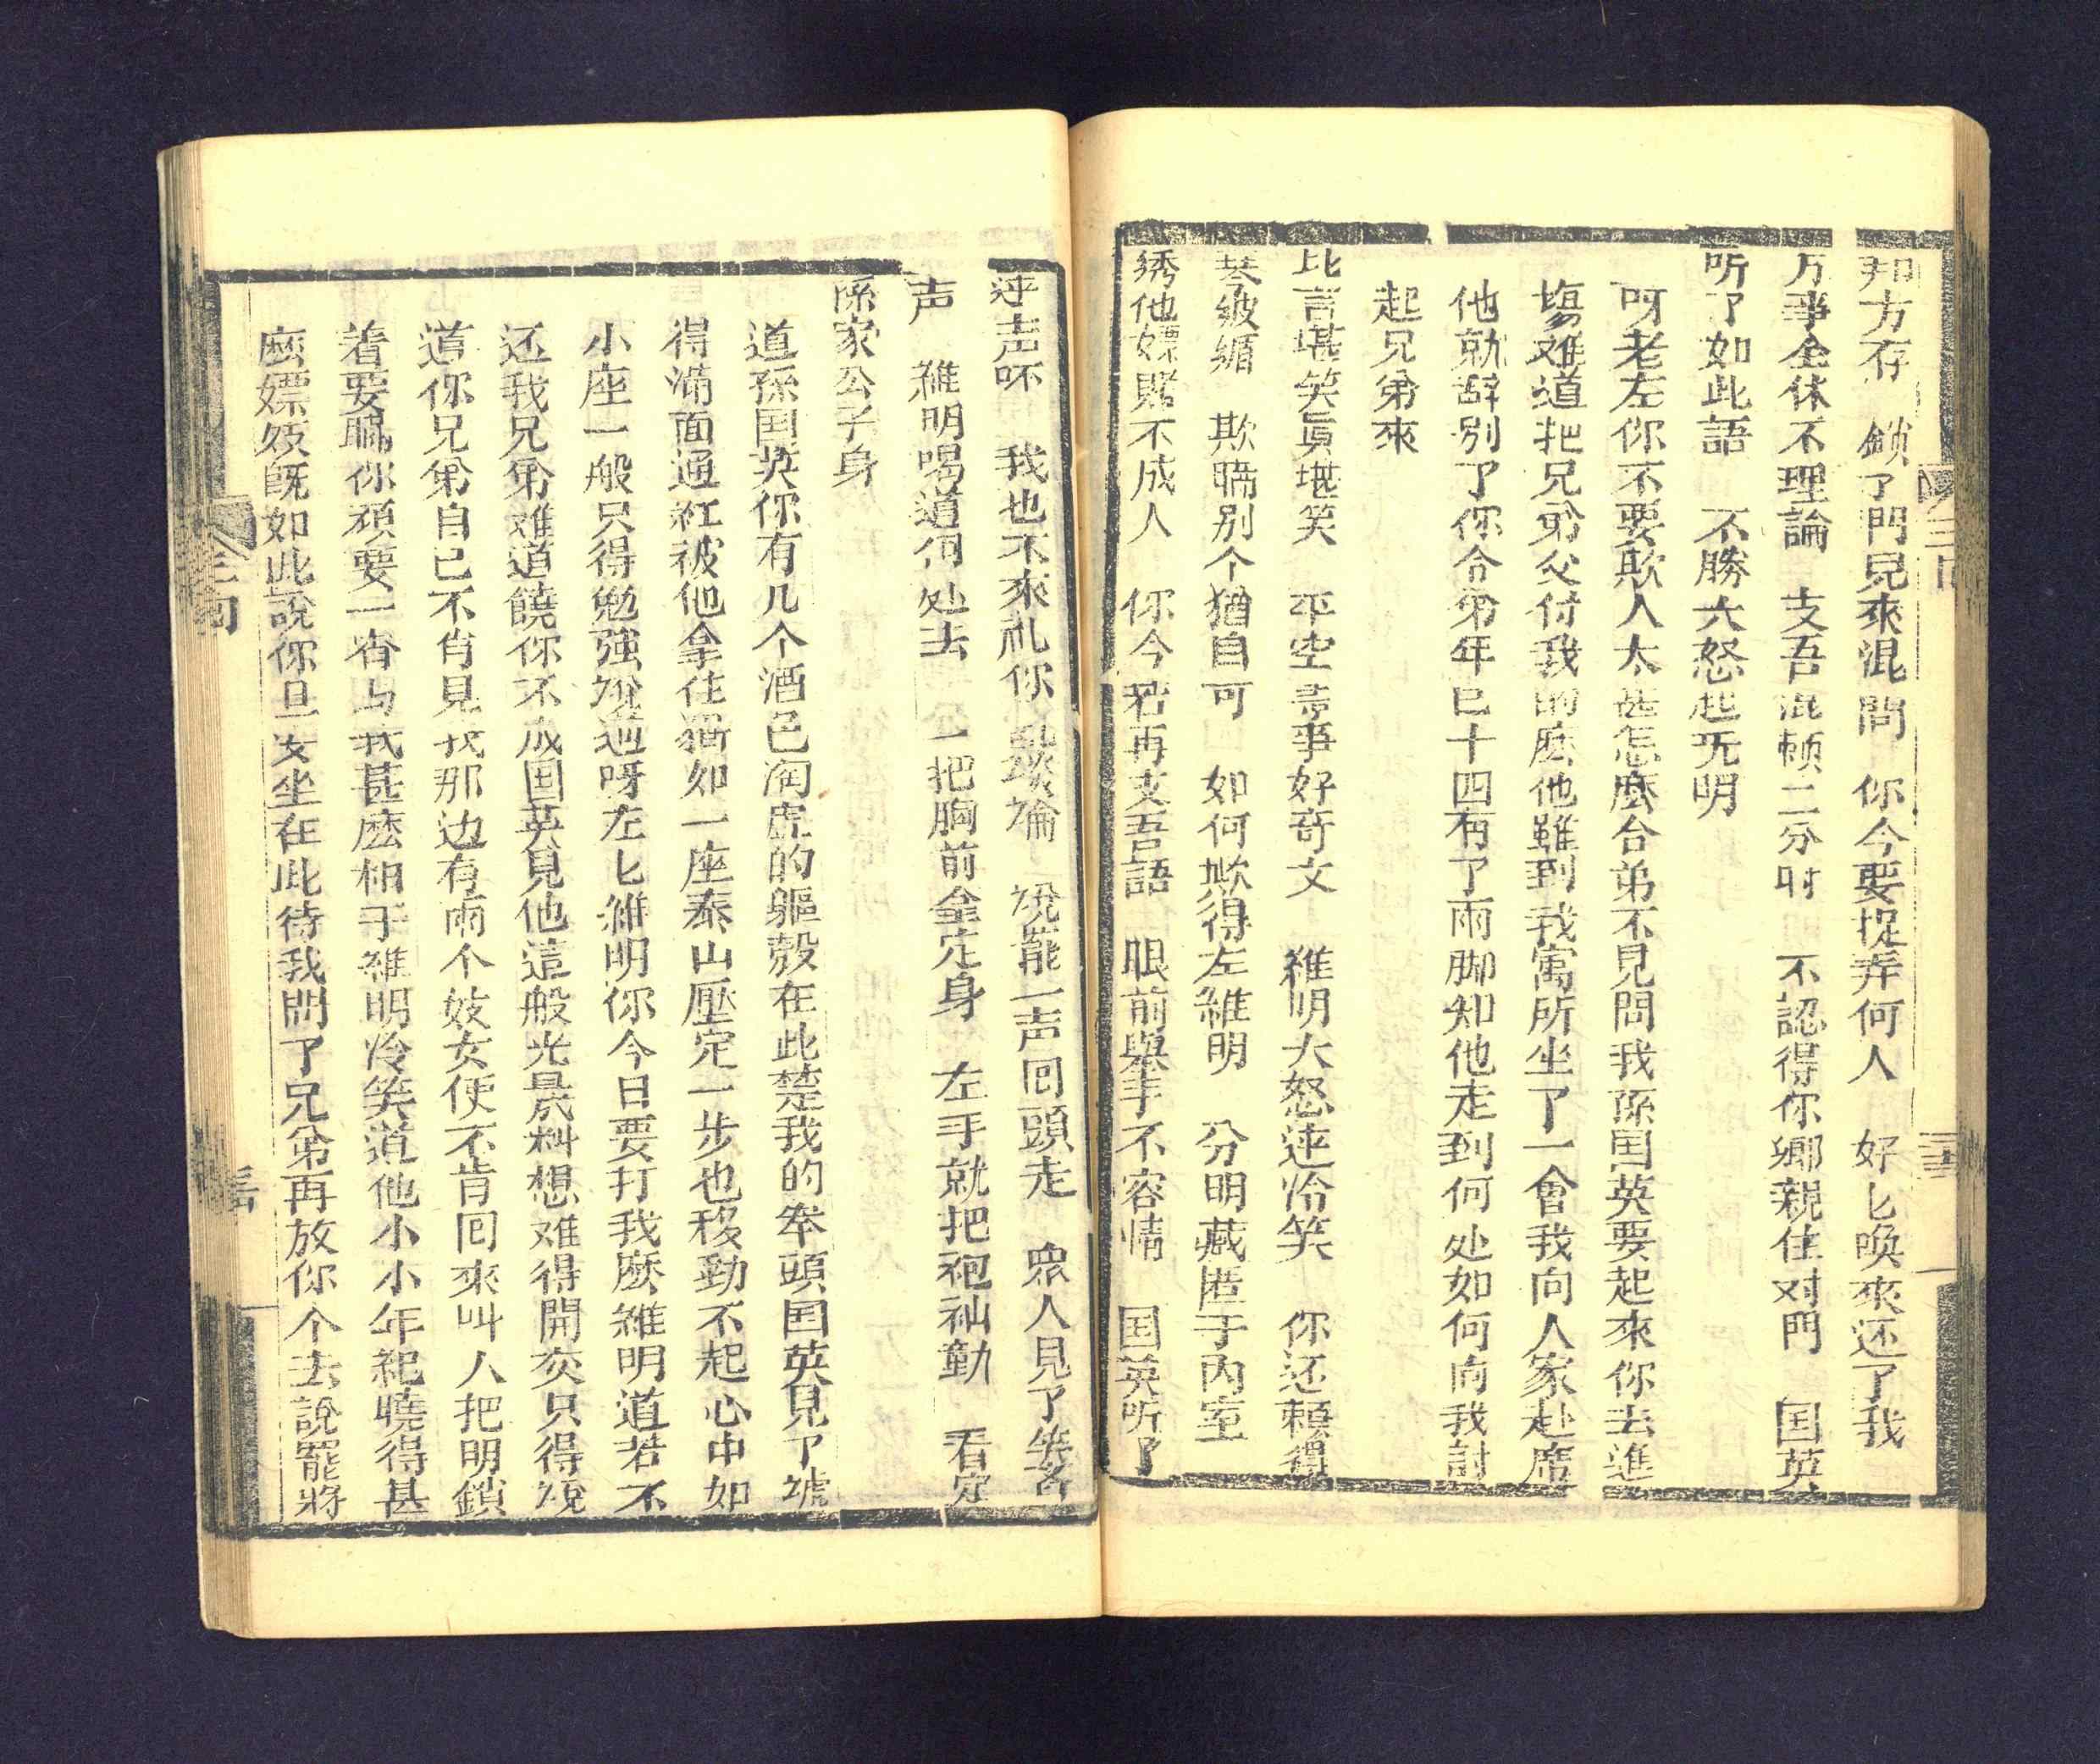 那方存 鎖了門見來混問 你今要捉弄何人 好匕喚來还了我
万事全休不理論 支吾混頼二分时 不認得你鄉親住对門 国英
听了如此語 不勝大怒起无明
呀老左你不要欺人太甚怎麽合弟不見問我孫国英要起來你去進
塲难道把兄弟父付我的麽他雖到我寓所坐了一會我向人家赴席
他就辞别了你令弟年已十四有了兩脚知他走到何处如何向我討
起兄弟來
此言堪笑眞堪笑 平空尋事好奇文 維明大怒連冷笑 你还頼得
琴緻緧 欺瞞别个猶自可 如何欺得左維明 分明藏匿于内室
綉他嫖賭不成人 你今若再支吾語 眼前舉手不容情 国英听了
連声呸 我也不來礼你談論 說罷一声回頭走 衆人見了笑
声 維明喝道何处去 一把胸前全定身 左手就把袍衪勤 看定
孫家公子身
道孫国英你有几个酒色淘虗的軀殻在此楚我的拳頭国英見了唬
得滿面通紅被他拿住猶如一座泰山壓定一步也移動不起心中如
小座一般只得勉強說道呀左匕維明你今日要打我麽維明道若不
还我兄弟难道饒你不成国英見他這般光景料想难得開交只得說
道你兄弟自已不肯見我那边有兩个妓女便不肯回來叫人把明鎖
着要瞞你須要一省与我甚麽相干維明冷笑道他小小年紀曉得甚
麽嫖妓旣如此說你且安坐在此待我問了兄弟再放你个去說罷將